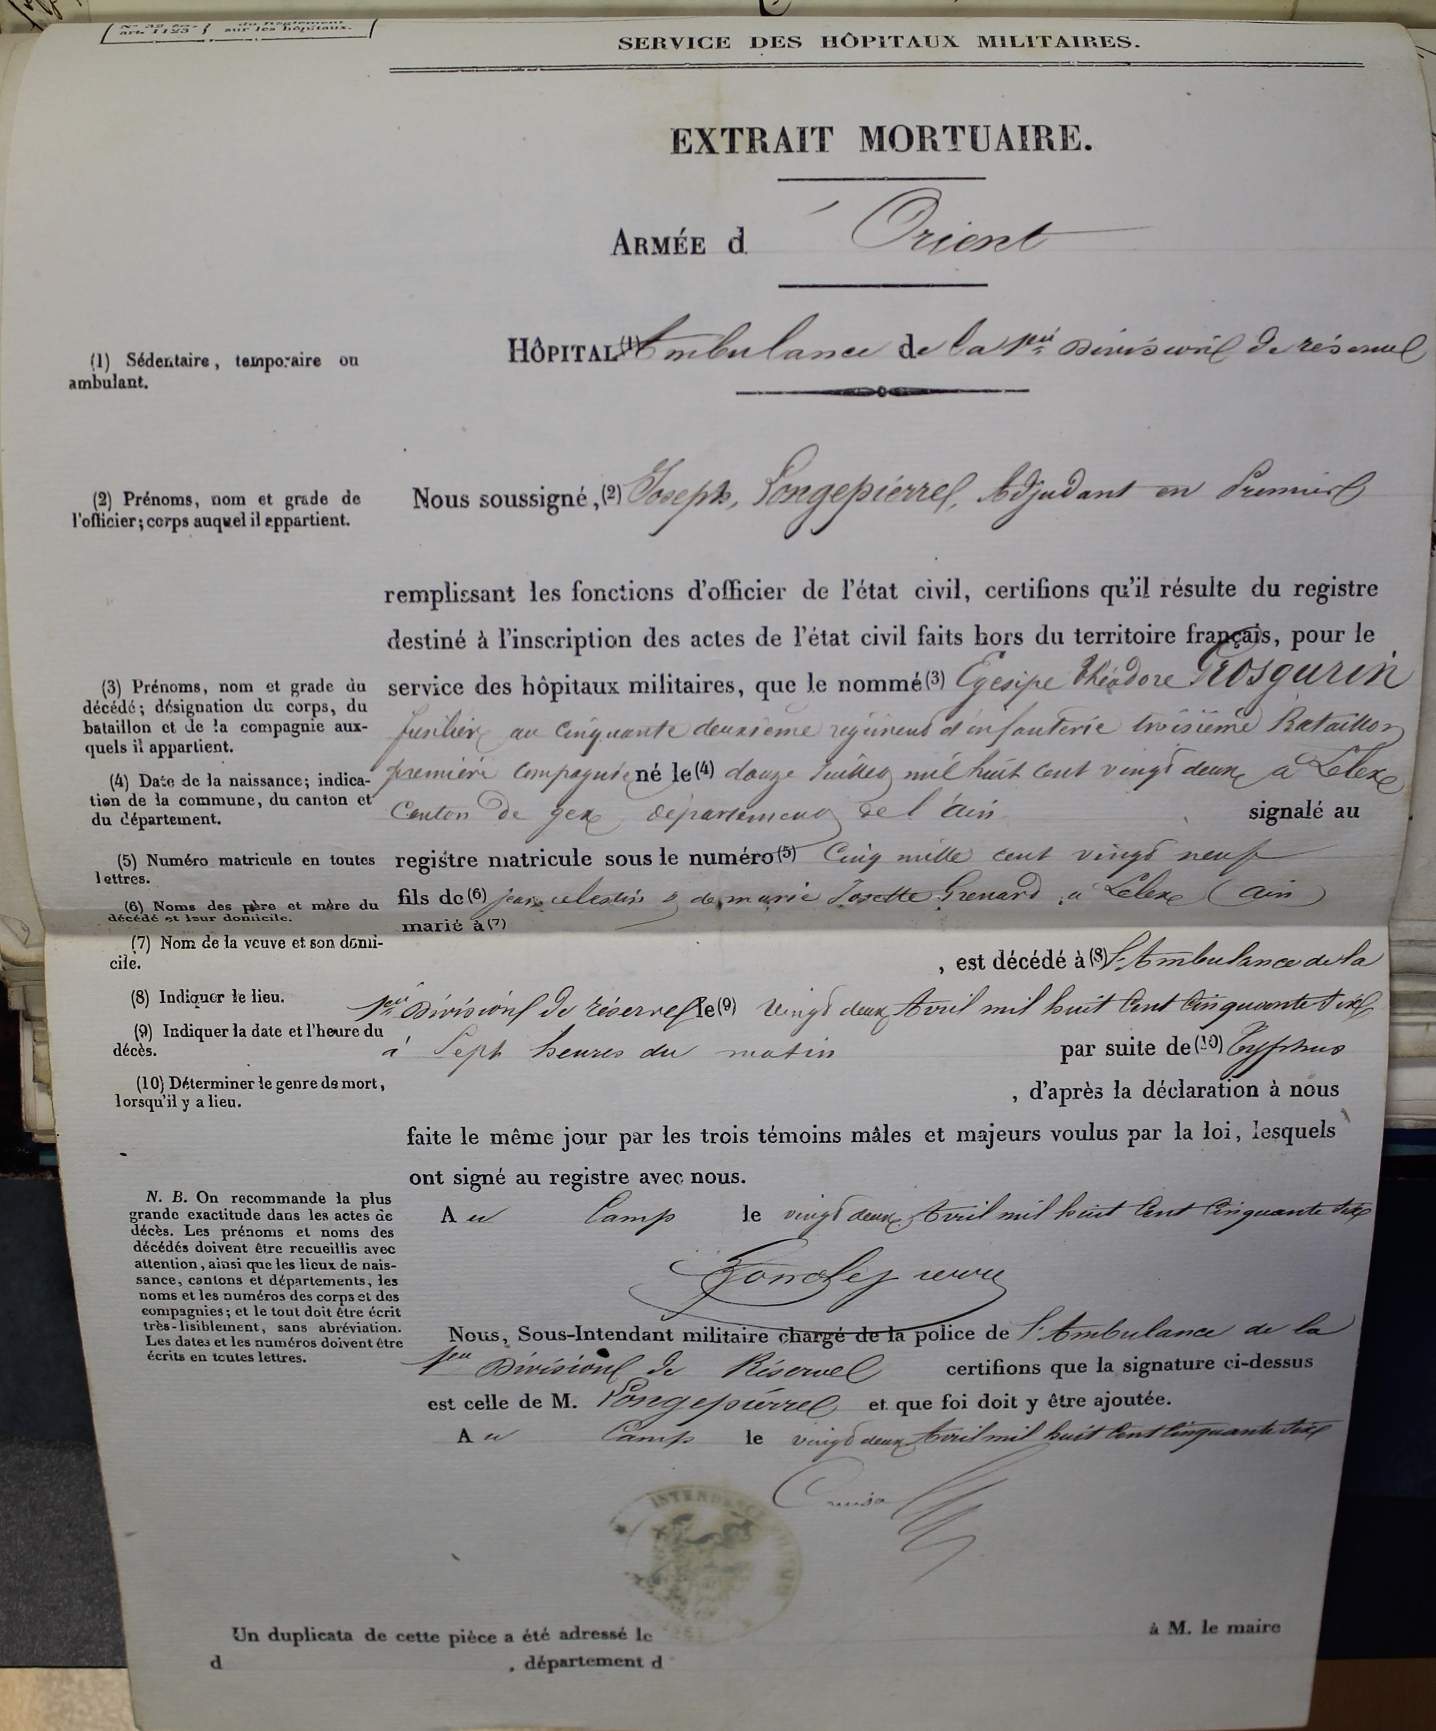 art. 1123 sur les hôpitaux.
SERVICE DES HÔPITAUX MILITAIRES.
EXTRAIT MORTUAIRE.
ARMÉE d'Orient
(1) Sédentaire, temporaire ou
ambulant.
HÔPITAL (1) Ambulance de la 1ère Division de réserve
(2) Prénoms, nom et grade de
l'officier; corps auquel il appartient.
Nous soussigné, (2) Joseph, Longepierre, Adjudant en Premier
remplissant les fonctions d'officier de l'état civil, certifions qu'il résulte du registre
destiné à l'inscription des actes de l'état civil faits hors du territoire français, pour le
service des hôpitaux militaires, que le nommé (3) Egesipe Théodore Grosgurin
fusilier au Cinquante deuxième régiment d'infanterie troisième Bataillon
première Compagnie né le (4) douze Juillet mil huit cent vingt deux à Lelex
Canton de gex département de l'ain signalé au
registre matricule sous le numéro (5) Cinq mille cent vingt neuf
fils de (6) jean celestin & de marie Josette Grenard, à Lelex (ain)
marié à (7)
, est décédé à (8) l'Ambulance de la
1ère Division de réserve le (9) vingt deux Avril mil huit Cent Cinquante Six
à Sept heures du matin par suite de (10) Typhus
, d'après la déclaration à nous
faite le même jour par les trois témoins mâles et majeurs voulus par la loi, lesquels
ont signé au registre avec nous.
(3) Prénoms, nom et grade du
décédé; désignation du corps, du
bataillon et de la compagnie aux-
quels il appartient.
(4) Date de la naissance; indica-
tion de la commune, du canton et
du département.
(5) Numéro matricule en toutes
lettres.
(6) Noms des père et mère du
décédé et leur domicile.
(7) Nom de la veuve et son domi-
cile.
(8) Indiquer le lieu.
(9) Indiquer la date et l'heure du
décès.
(10) Déterminer le genre de mort,
lorsqu'il y a lieu.
N. B. On recommande la plus
grande exactitude dans les actes de
décès. Les prénoms et noms des
décédés doivent être recueillis avec
attention, ainsi que les lieux de nais-
sance, cantons et départements, les
noms et les numéros des corps et des
compagnies; et le tout doit être écrit
très-lisiblement, sans abréviation.
Les dates et les numéros doivent être
écrits en toutes lettres.
Au Camp le vingt deux Avril mil huit Cent Cinquante Six
Nous, Sous-Intendant militaire chargé de la police de l'Ambulance de la
1ère Division de Réserve certifions que la signature ci-dessus
est celle de M. Longepierre et que foi doit y être ajoutée.
Au Camp le vingt deux Avril mil huit Cent Cinquante Six
INTENDANCE
Un duplicata de cette pièce a été adressé le à M. le maire
d , département d